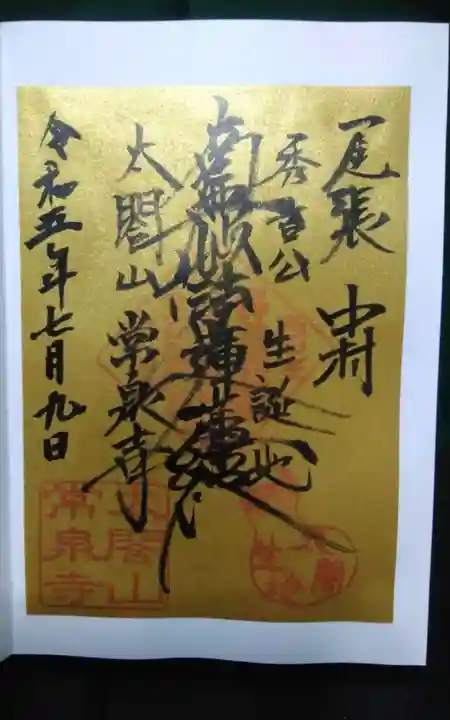 尾張 中村
秀吉公 生誕地
南無妙法蓮華経
太閤山 常泉寺
令和五年七月九日
太閤山
常泉寺